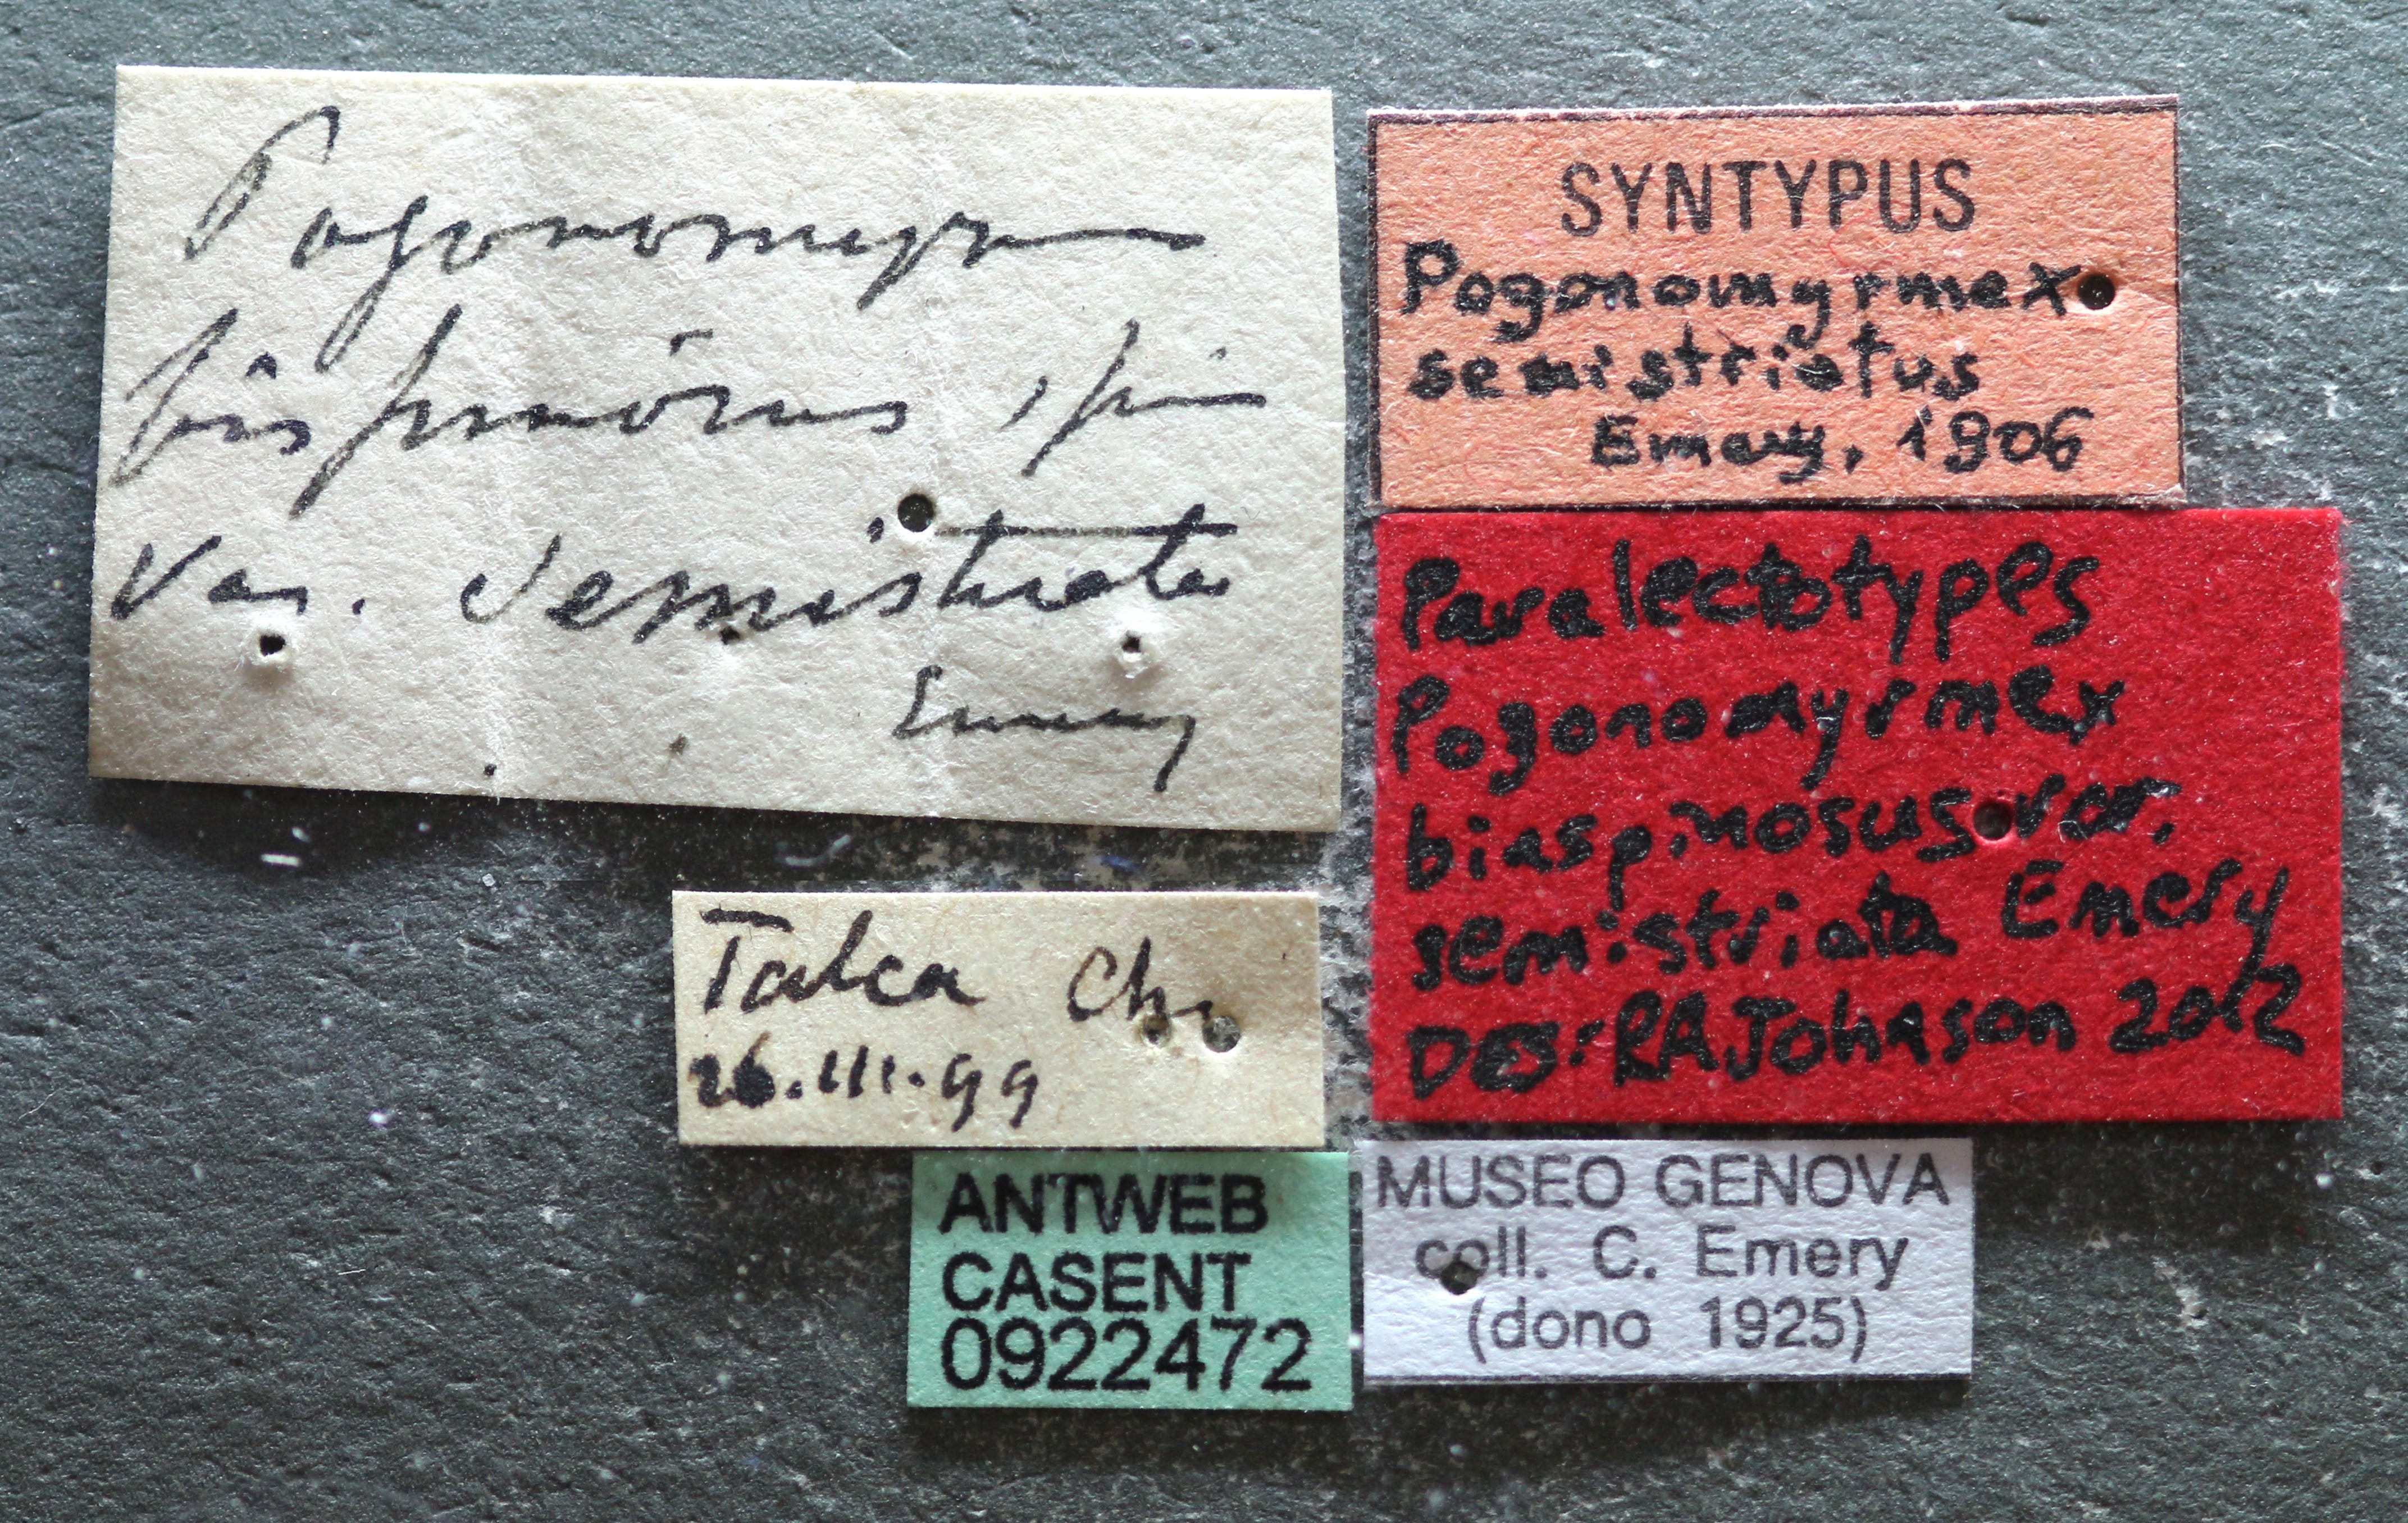 Pogonomyrm
bispinosus, spin
Var. semistriata
Emery
SYNTYPUS
Pogonomyrmex
semistriatus
Emery, 1906
Paralectotypes
Pogonomyrmex
biaspinosus var.
semistriata Emery
DES: RA Johnson 2012
Talca Chi
26.III.99
ANTWEB
CASENT
0922472
MUSEO GENOVA
coll. C. Emery
(dono 1925)